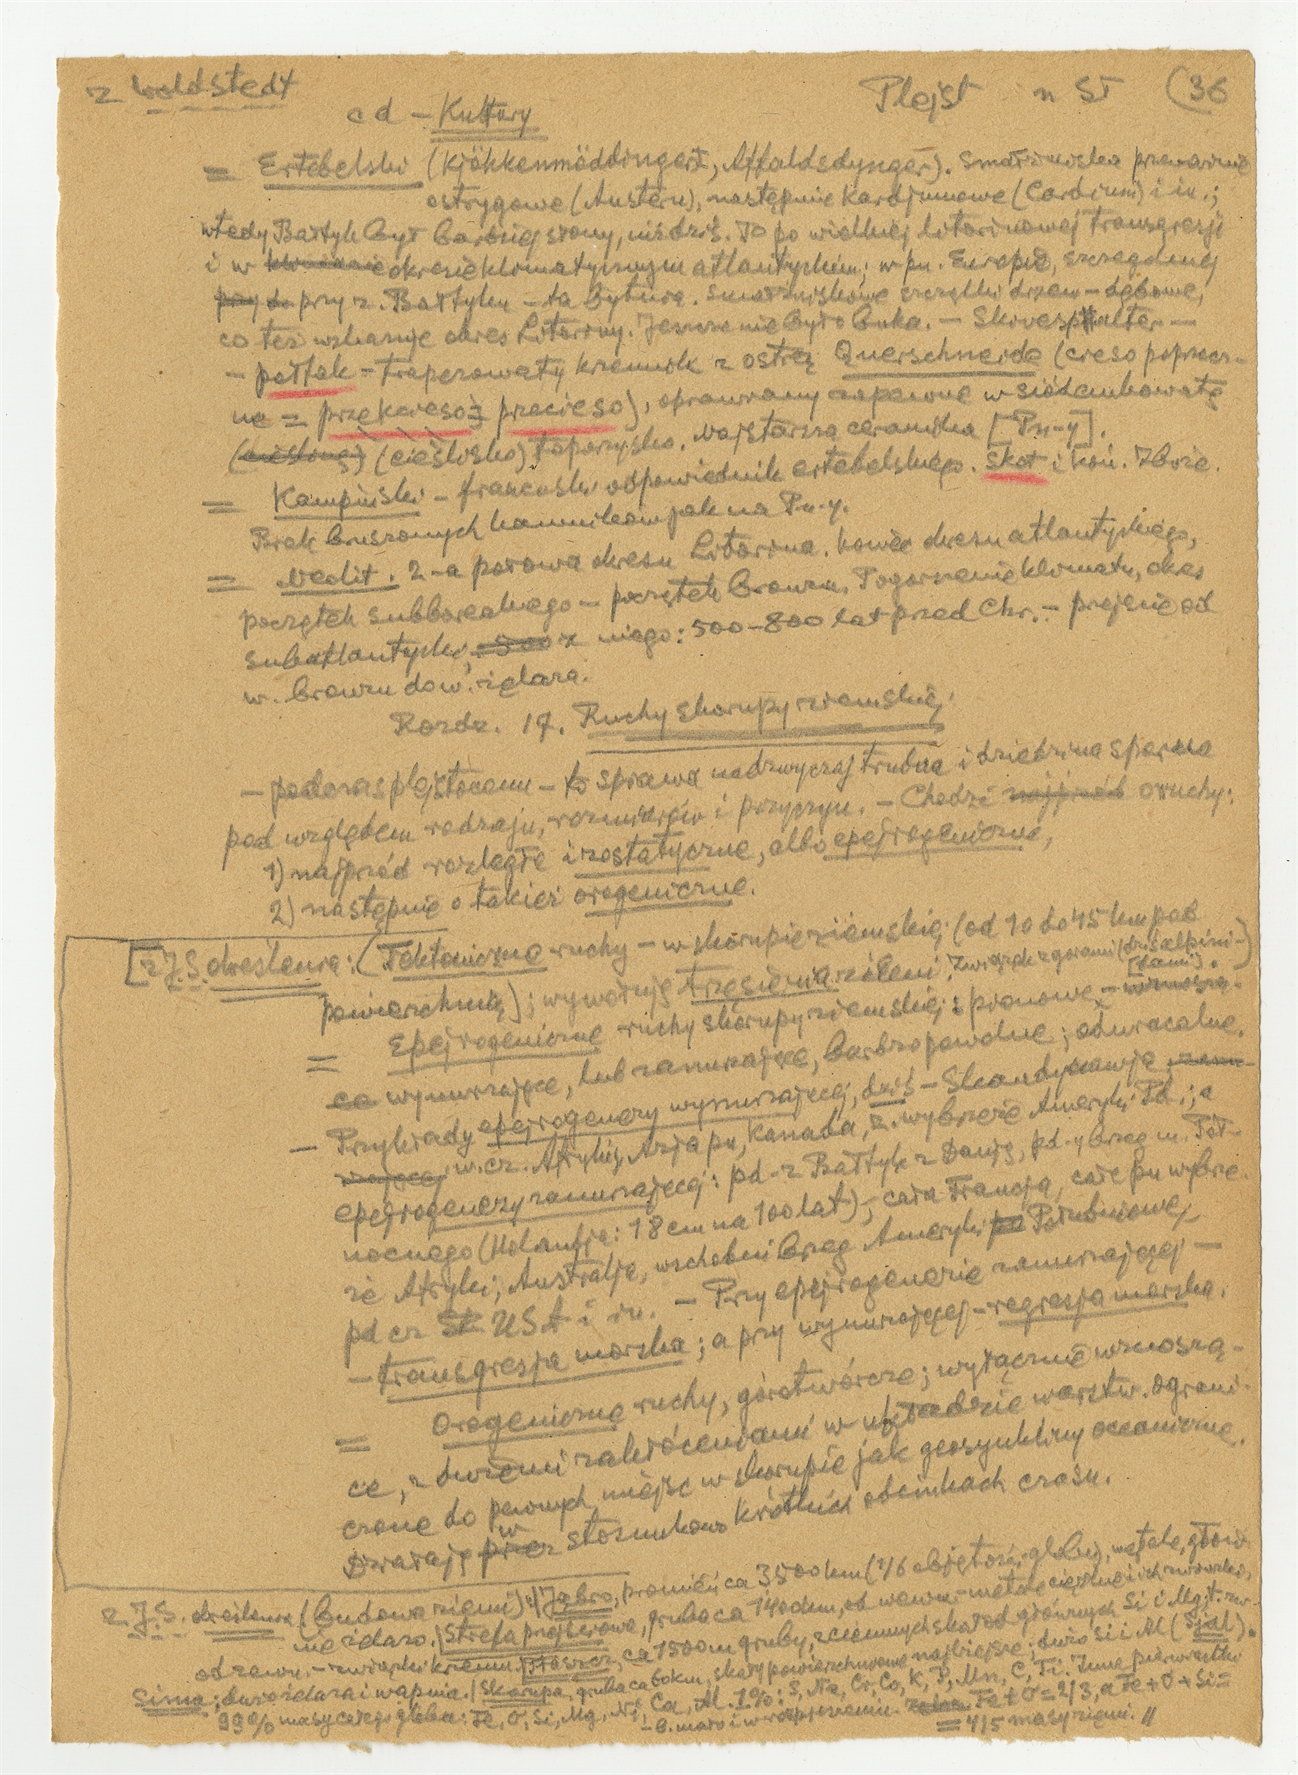 z Woldstedt
Plejst n ST (36
c d – Kultury
= Ertebelski (Kjökkenmöddingert, Affaldsdynger). Śmietniska przeważnie
ostrygowe (Austern), następnie Kardjumowe (Cardium) i in.;
wtedy Bałtyk był bardziej słony, niż dziś. To po wielkiej litorinowej transgresji
i w okresie klimatycznym atlantyckim; w pn. Europie, szczególniej
przy z. Bałtyku – ta kultura. szczątki drzew – dębowe,
co też wskazuje okres Litoriny. Jeszcze nie było buka. – Skivespalter –
– połtak – trapezowaty krzemień z ostrą Querschneide (cieso poprzecz-
ne = przekcieso = przecieso), oprawiany zapewne w siódemkowatą
(cieślicę) (cieślisko) toporzysko. Najstarsza ceramika [Pn-y].
= Kampiński – francuski odpowiednik ertebelskiego. Skot i koń. Zboże.
Brak kruszonych kamnikow jak na Pn-y.
= Neolit. 2-a połowa okresu Litorina. Koniec okresu atlantyckiego,
początek subborealnego – początek bronzu. Pogorszenie klimatu, okres
subatlantycki, niego: 500–800 lat przed Chr. – przejście od
w. bronzu do w. żelaza.
Rozdz. 17. Ruchy skorupy ziemskiej.
– podczas plejstocenu – to sprawa nadzwyczaj trudna i dziedzina sporna
pod względem rodzaju, rozmiarów i przyczyn. – Chodzi najprzód o ruchy:
1) najprzód rozległe izostatyczne, albo epejrogeniczne,
2) następnie o takież orogeniczne.
[z J.S. określenia: (Tektoniczne ruchy – w skorupie ziemskiej (od 10 do 45 km pod
powierzchnią); wywołują trzęsienia ziemi. Związek z górami (dziś alpini-
dami).
= Epejrogeniczne ruchy skorupy ziemskiej: pionowe, – wznoszą-
ce wynurzające, lub zanurzające, bardzo powolne; odwracalne.
– Przykłady epejrogenezy wynurzającej, dziś – Skandynawja zanu-
rzającej w. cz. Afryki, Azja pn, Kanada, z. wybrzeże Ameryki Pd.; a
epejrogenezy zanurzającej: pd-z Bałtyk z Danją, pd-y brzeg m. Pół-
nocnego (Holandja: 18 cm na 100 lat); cała Francja, całe pn wybrze-
że Afryki; Australja, wschodni brzeg Ameryki Południowej,
pd cz St USA i in. – Przy epejrogenezie zanurzającej –
– transgresja morska; a przy wynurzającej – regresja morska.
= Orogeniczne ruchy, górotwórcze; wyłącznie wznoszą-
ce, z dużemi zakłóceniami w układzie warstw. Ograni-
czone do pewnych miejsc w skorupie jak geosynkliny oceaniczne.
Działają w przez stosunkowo krótkich odcinkach czasu.
z J.S. określenia (budowa ziemi): 1/ Jądro, promień ca 3500 km (1/6 objętości globu), metale, głów-
nie żelazo. / Strefa przejściowa, gruba ca 1400 km, od wewn. – metale ciężkie i ich związki,
od zewn. – związki krzemu. / Płaszcz, ca 1500 m gruby, z ciemnych skał od głównych Si i Mg, t. zw.
Sima; dużo żelaza i wapnia. / Skorupa, gruba ca 60 km, skały powierzchniowe najlżejsze; dużo Si i Al (Sial).
99% masy całego globu: Fe, O, Si, Mg, Ni, Ca, Al. 1%: S, Na, Cr, Co, K, P, Mn, C, Ti. Inne pierwiastki
– b. mało i w rozproszeniu. Fe + O = 2/3, a Fe + O + Si =
= 4/5 masy ziemi. //